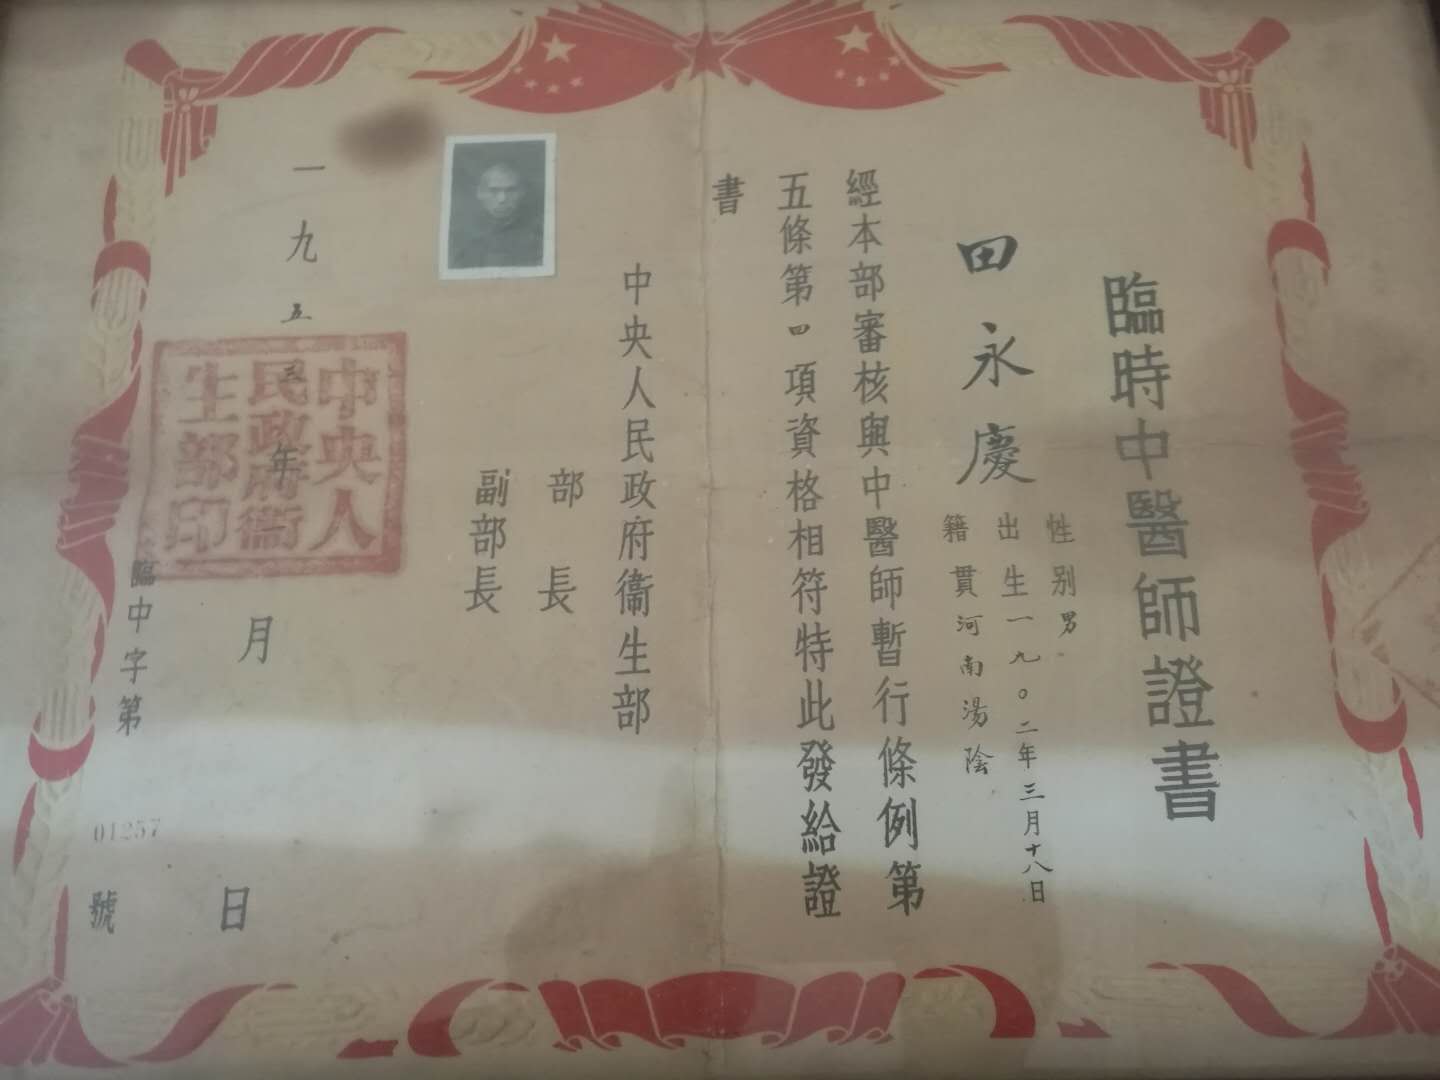 臨時中醫師證書
田永慶
性别男
出生一九〇二年三月十八日
籍貫河南湯陰
經本部審核與中醫師暫行條例第
五條第四項資格相符特此發給證
書
中央人民政府衞生部
部長
副部長
一九五三年月日
中央人
民政府衞
生部印
臨中字第01257號